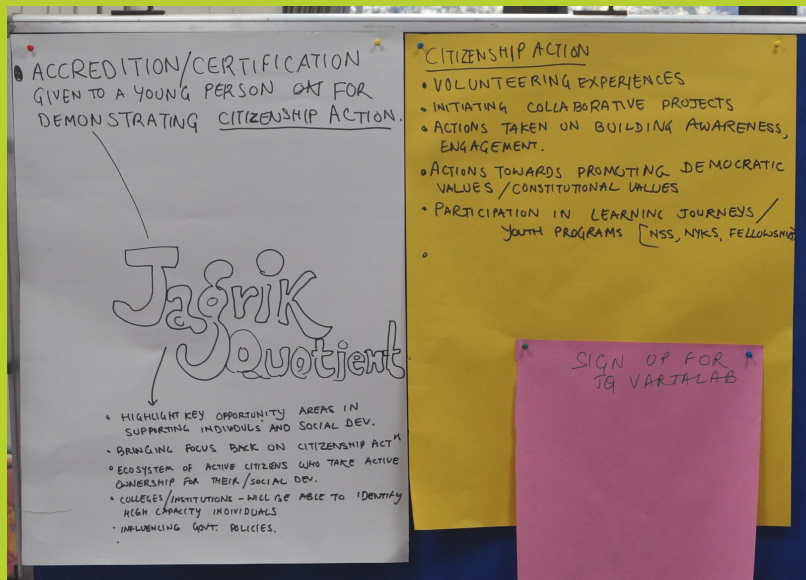 • ACCREDITION/CERTIFICATION
GIVEN TO A YOUNG PERSON FOR
DEMONSTRATING CITIZENSHIP ACTION.
Jagrik
Quotient
• HIGHLIGHT KEY OPPORTUNITY AREAS IN
SUPPORTING INDIVDULS AND SOCIAL DEV.
• BRINGING FOCUS BACK ON CITIZENSHIP ACTN
• ECOSYSTEM OF ACTIVE CITIZENS WHO TAKE ACTIVE
OWNERSHIP FOR THEIR/SOCIAL DEV.
• COLLEGES/INSTITUTIONS - WILL BE ABLE TO IDENTIFY
HIGH CAPACITY INDIVIDUALS
• INFLUENCING GOVT. POLICIES.
CITIZENSHIP ACTION
• VOLUNTEERING EXPERIENCES
• INITIATING COLLABORATIVE PROJECTS
• ACTIONS TAKEN ON BUILDING AWARENESS,
ENGAGEMENT.
• ACTIONS TOWARDS PROMOTING DEMOCRATIC
VALUES/CONSTITUTIONAL VALUES
• PARTICIPATION IN LEARNING JOURNEYS/
YOUTH PROGRAMS [NSS, NYKS, FELLOWSHIP]
SIGN UP FOR
JQ VARTALAB